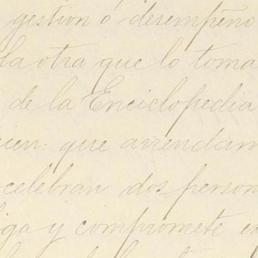 gestión ó desempeño
la otra que lo toma
de la Enciclopedia
que arriendam
celebran dos person
iga y compromete